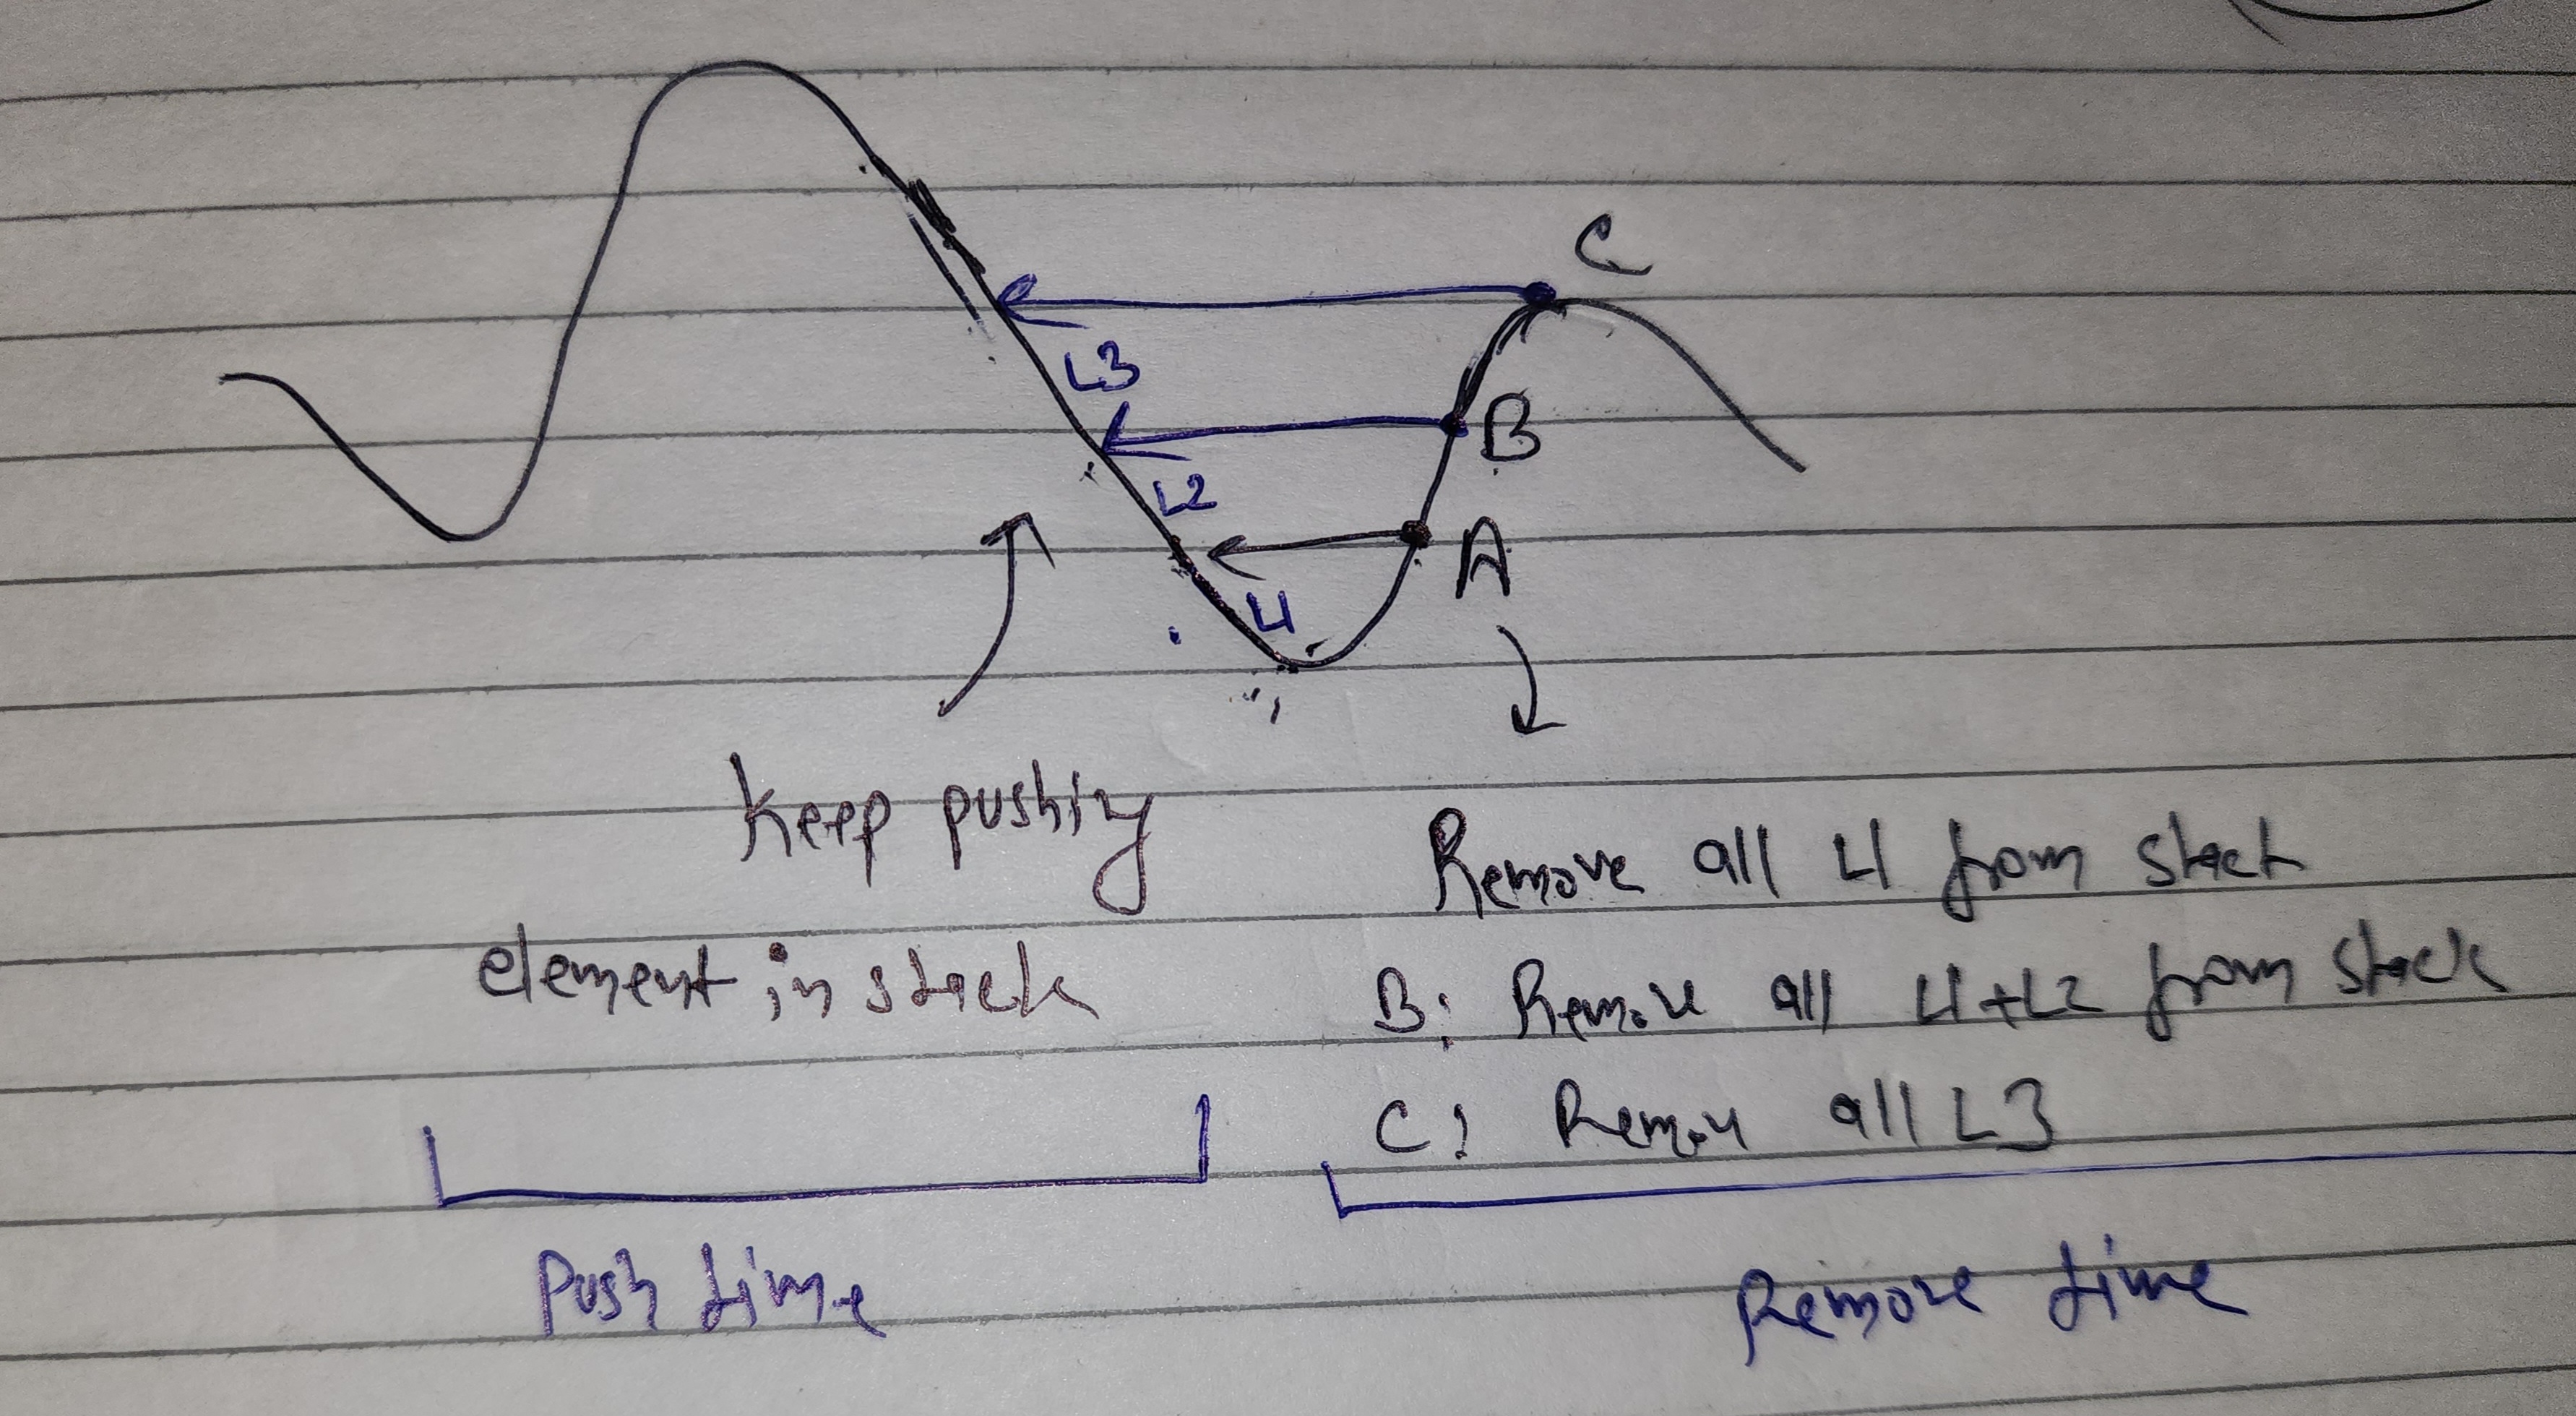 C
L3
B
L2
A
L1
Keep pushing
element in stack
Remove all L1 from stack
B: Remove all L1+L2 from stack
C: Remove all L3
Push time
Remove time